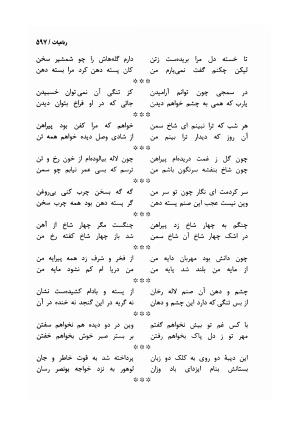 رباعیات / ۵۹۷
تا خسته دل مرا بریده‌ست زتن دارم گله‌هاش را چو شمشیر سخن
لیکن چکنم گفت نمی‌یارم من کان پسته دهن کرد مرا بسته دهن
***
در سمجی چون توانم آرامیدن کز تنگی آن نمی‌توان خسبیدن
یارب که همی به چشم خواهم دیدن جائی که در او فراخ بتوان دیدن
***
هر شب که ترا نبینم ای شاخ سمن خواهم که مرا کفن بود پیراهن
آن روز که دیدار ترا بینم من از شادی وصل دیده خواهم همه تن
***
چون گل ز غمت دریده‌ام پیراهن چون لاله بیالوده‌ام از خون رخ و تن
چون شاخ بنفشه سرنگون باشم من ترسم که بسی عمر نیابم چو سمن
***
سر کردمت ای نگار چون تو سر من گه گه بسخن چرب کنی بی‌روغن
وین نیست عجب این صنم پسته دهن گر پسته دهن بود همه چرب سخن
***
چنگم به چهار شاخ زد پیراهن چنگست مگر چهار شاخ از آهن
در اشک چهار شاخ آن شاخ سمن شد باز چهار شاخ کفته رخ من
***
چون دانش بود مهربان دایه من از فخر و شرف زد همه پیرایه من
از مایه من بلند شد پایه من من دریا ام کم نشود مایه من
***
چشم و دهن آن صنم لاله رخان از پسته و بادام کشیدست نشان
از بس تنگی که دارد این چشم و دهان نه گریه در این گنجد نه خنده در آن
***
با کس غم تو بیش نخواهم گفتن وین در دو دیده هم نخواهم سفتن
مهر تو ز دل پاک بخواهم رفتن بر بستر صبر خوش نخواهم خفتن
***
این دیبهٔ دو روی به کلک دو زبان پرداخته شد به قوت خاطر و جان
بستانش بنام ایزدای باد وزان لوهور به نزد خواجه بونصر رسان
***